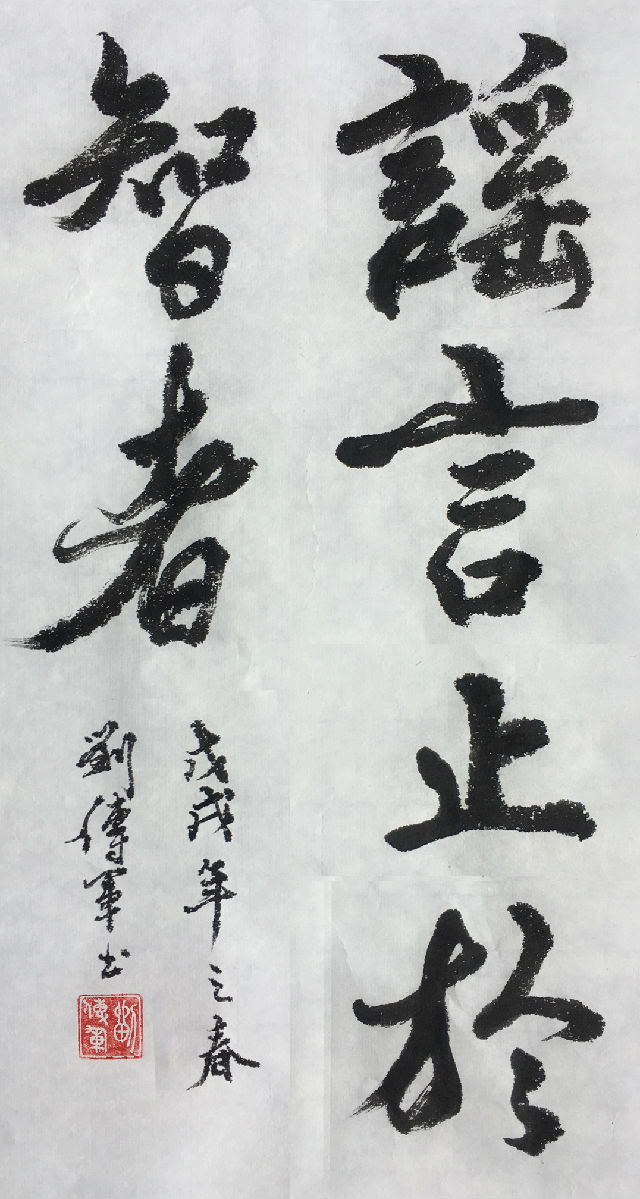 謡言止於
智者
戊戌年之春
劉傳軍书
劉傳軍